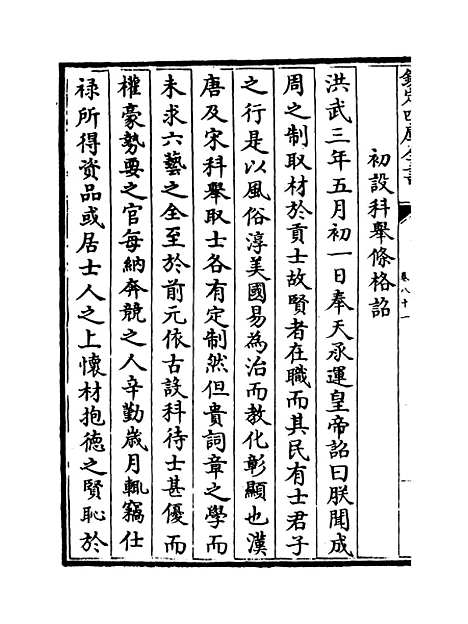 欽定四庫全書
卷八十一
初設科舉條格詔
洪武三年五月初一日奉天承運皇帝詔曰朕聞成
周之制取材於貢士故賢者在職而其民有士君子
之行是以風俗淳美國易為治而教化彰顯也漢
唐及宋科舉取士各有定制然但貴詞章之學而
未求六藝之全至於前元依古設科待士甚優而
權豪勢要之官每納奔競之人辛勤歲月輒竊仕
祿所得資品或居士人之上懷材抱德之賢恥於